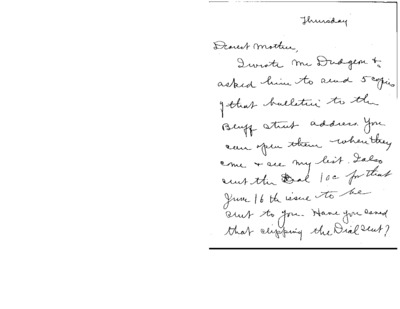 Thursday
Dearest Mother,
I wrote Mr Dudgeon &
asked him to send 5 copies
of that bulletin to the
Bluff street address. You
can open them when they
come & see my list. I also
sent the Dial 10c for that
June 16th issue to be
sent to you. Have you saved
that clipping the Dial sent?